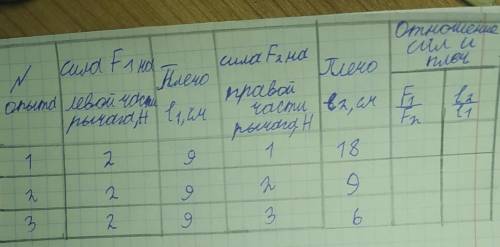 N опыта | сила F1 на левой части рычага, Н | Плечо l1, см | сила F2 на правой части рычага, Н | Плечо l2, см | Отношение сил и плеч
F1/F2 | l2/l1
1 | 2 | 9 | 1 | 18
2 | 2 | 9 | 2 | 9
3 | 2 | 9 | 3 | 6